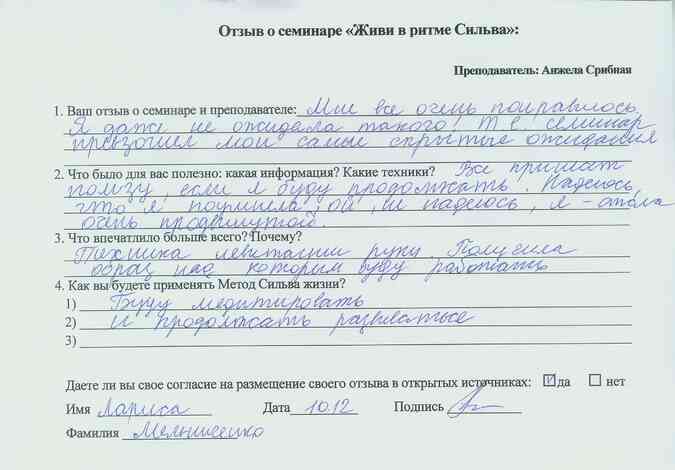 Отзыв о семинаре «Живи в ритме Сильва»:
Преподаватель: Анжела Срибная
1. Ваш отзыв о семинаре и преподавателе: Мне все очень понравилось
Я даже не ожидала такого! Т.е. семинар
превзошел мои самые скрытые ожидания
2. Что было для вас полезно: какая информация? Какие техники? Все принесет
пользу, если я буду продолжать. Надеюсь,
что я поумнела, ой, не надеюсь, я - стала
очень продвинутой.
3. Что впечатлило больше всего? Почему?
Техника левитации руки. Получила
образ над которым буду работать
4. Как вы будете применять Метод Сильва жизни?
1) Буду медитировать
2) и продолжать развиваться
3)
Даете ли вы свое согласие на размещение своего отзыва в открытых источниках: да нет
Имя Лариса Дата 10.12 Подпись
Фамилия